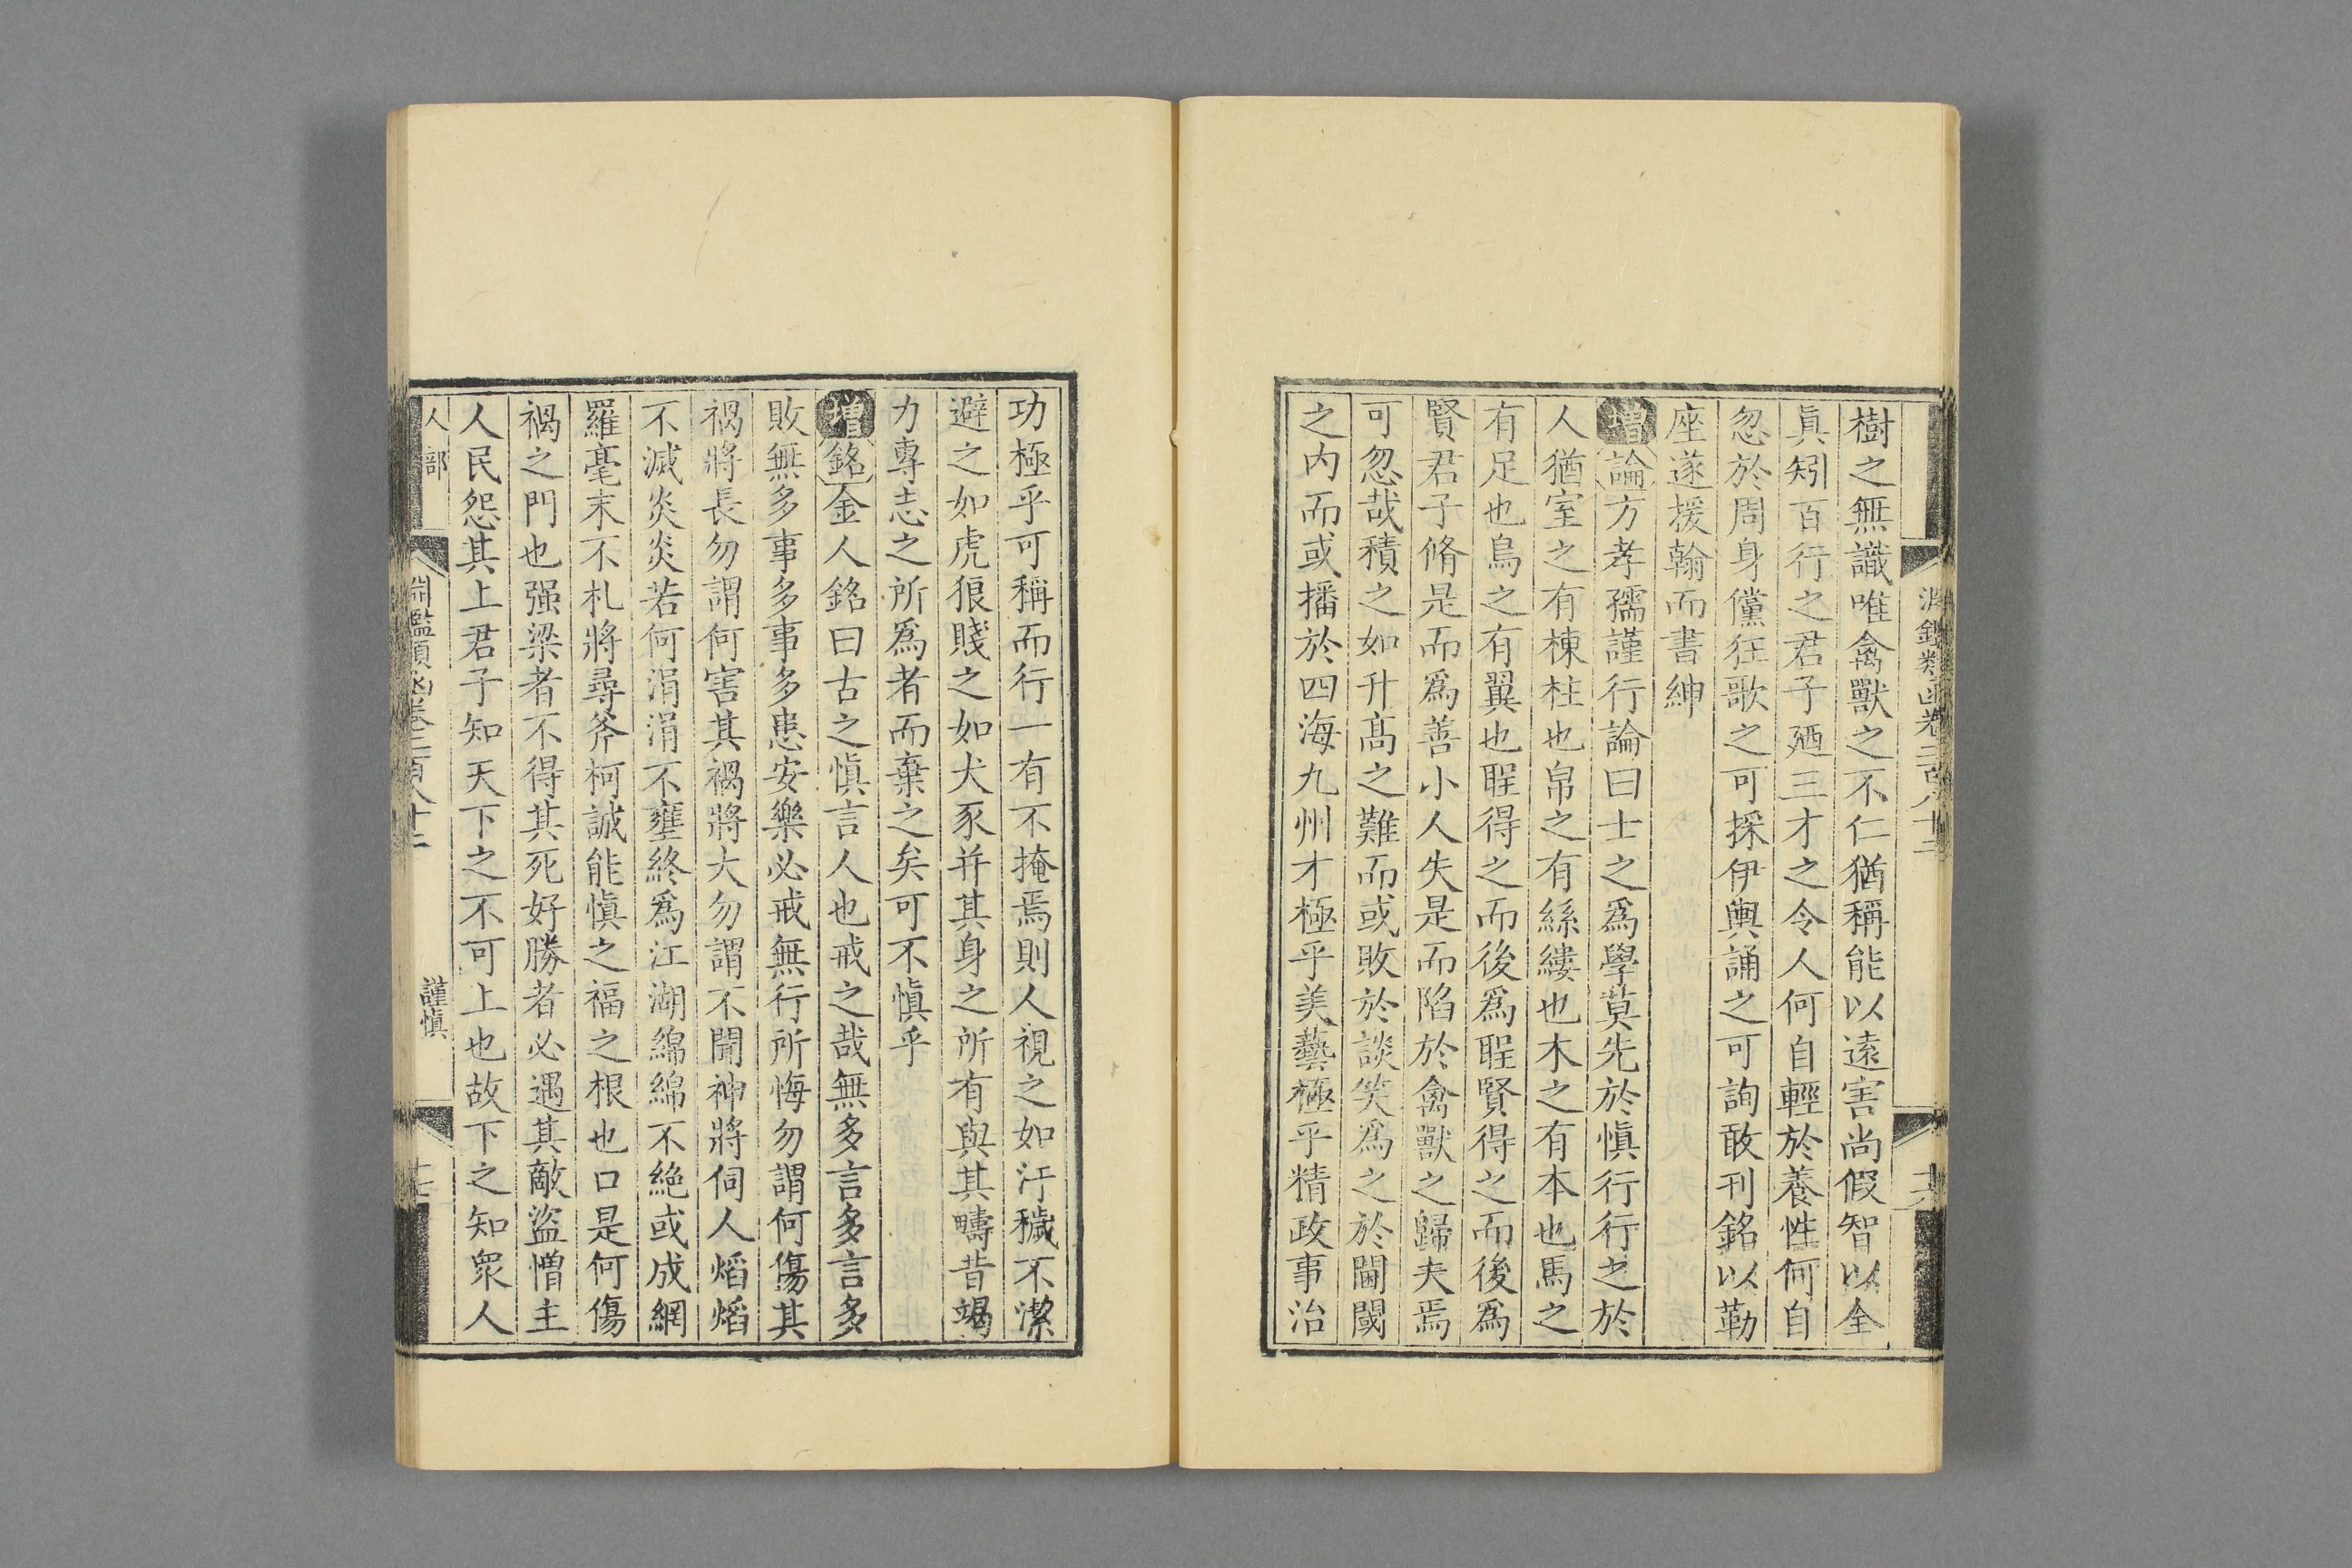 淵鑑類函卷二百八十二
十六
樹之無識唯禽獸之不仁猶稱能以遠害尚假智以全
眞矧百行之君子廼三才之令人何自輕於養性何自
忽於周身儻狂歌之可採伊輿誦之可詢敢刋銘以勒
座遂援翰而書紳
增論方孝孺謹行論曰士之爲學莫先於慎行行之於
人猶室之有棟柱也帛之有絲縷也木之有本也馬之
有足也鳥之有翼也聖得之而後爲聖賢得之而後爲
賢君子脩是而爲善小人失是而陷於禽獸之歸夫焉
可忽哉積之如升髙之難而或敗於談笑爲之於閫閾
之内而或播於四海九州才極乎美藝極乎精政事治
功極乎可稱而行一有不掩焉則人視之如汙穢不潔
避之如虎狼賤之如犬豕并其身之所有與其疇昔竭
力專志之所爲者而棄之矣可不愼乎
增銘金人銘曰古之愼言人也戒之哉無多言多言多
敗無多事多事多患安樂必戒無行所悔勿謂何傷其
禍將長勿謂何害其禍將大勿謂不聞神將伺人焰焰
不滅炎炎若何涓涓不壅終爲江湖綿綿不絶或成網
羅毫末不札將尋斧柯誠能愼之福之根也口是何傷
禍之門也强梁者不得其死好勝者必遇其敵盜憎主
人民怨其上君子知天下之不可上也故下之知衆人
人部
淵鑑類函卷二百八十二
謹愼
十七